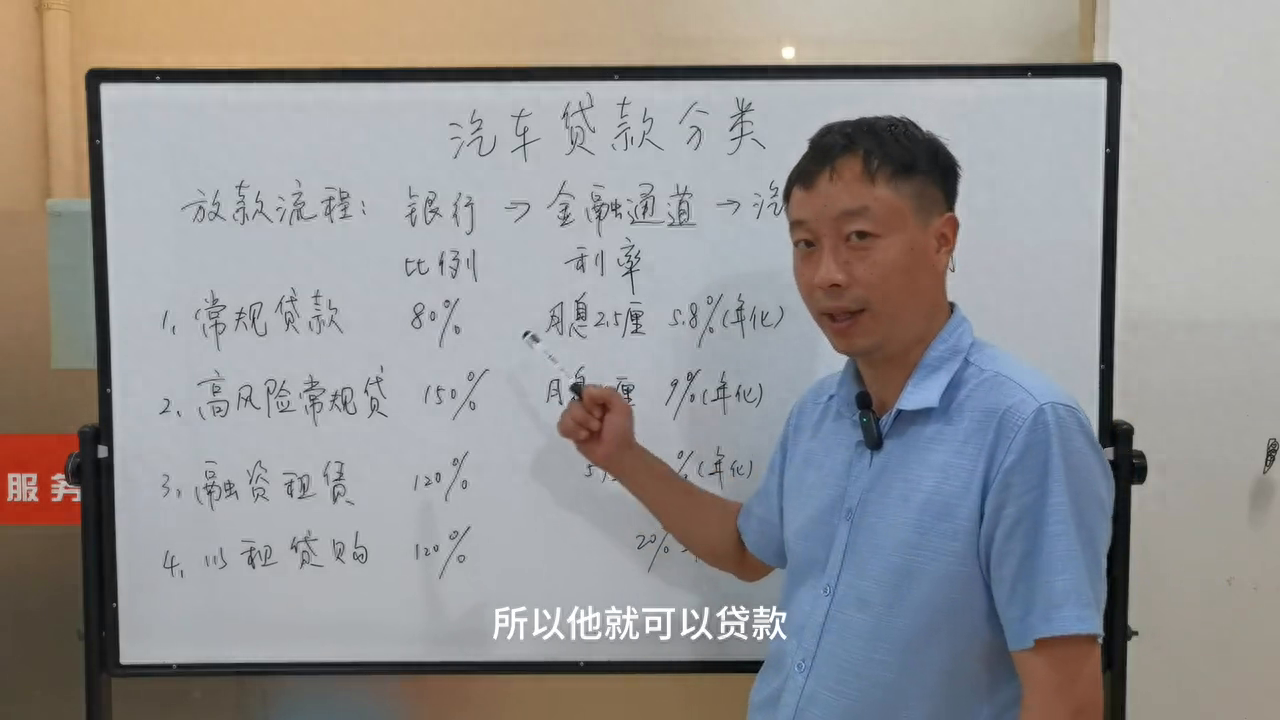 汽车贷款分类
放款流程: 银行 → 金融通道 → 汽
比例 利率
1、常规贷款 80% 月息2.5厘 5.8%(年化)
2、高风险常规贷 150% 月息 厘 9%(年化)
3、融资租赁 120% 5 %(年化)
4、以租贷购 120% 20%
服务
所以他就可以贷款